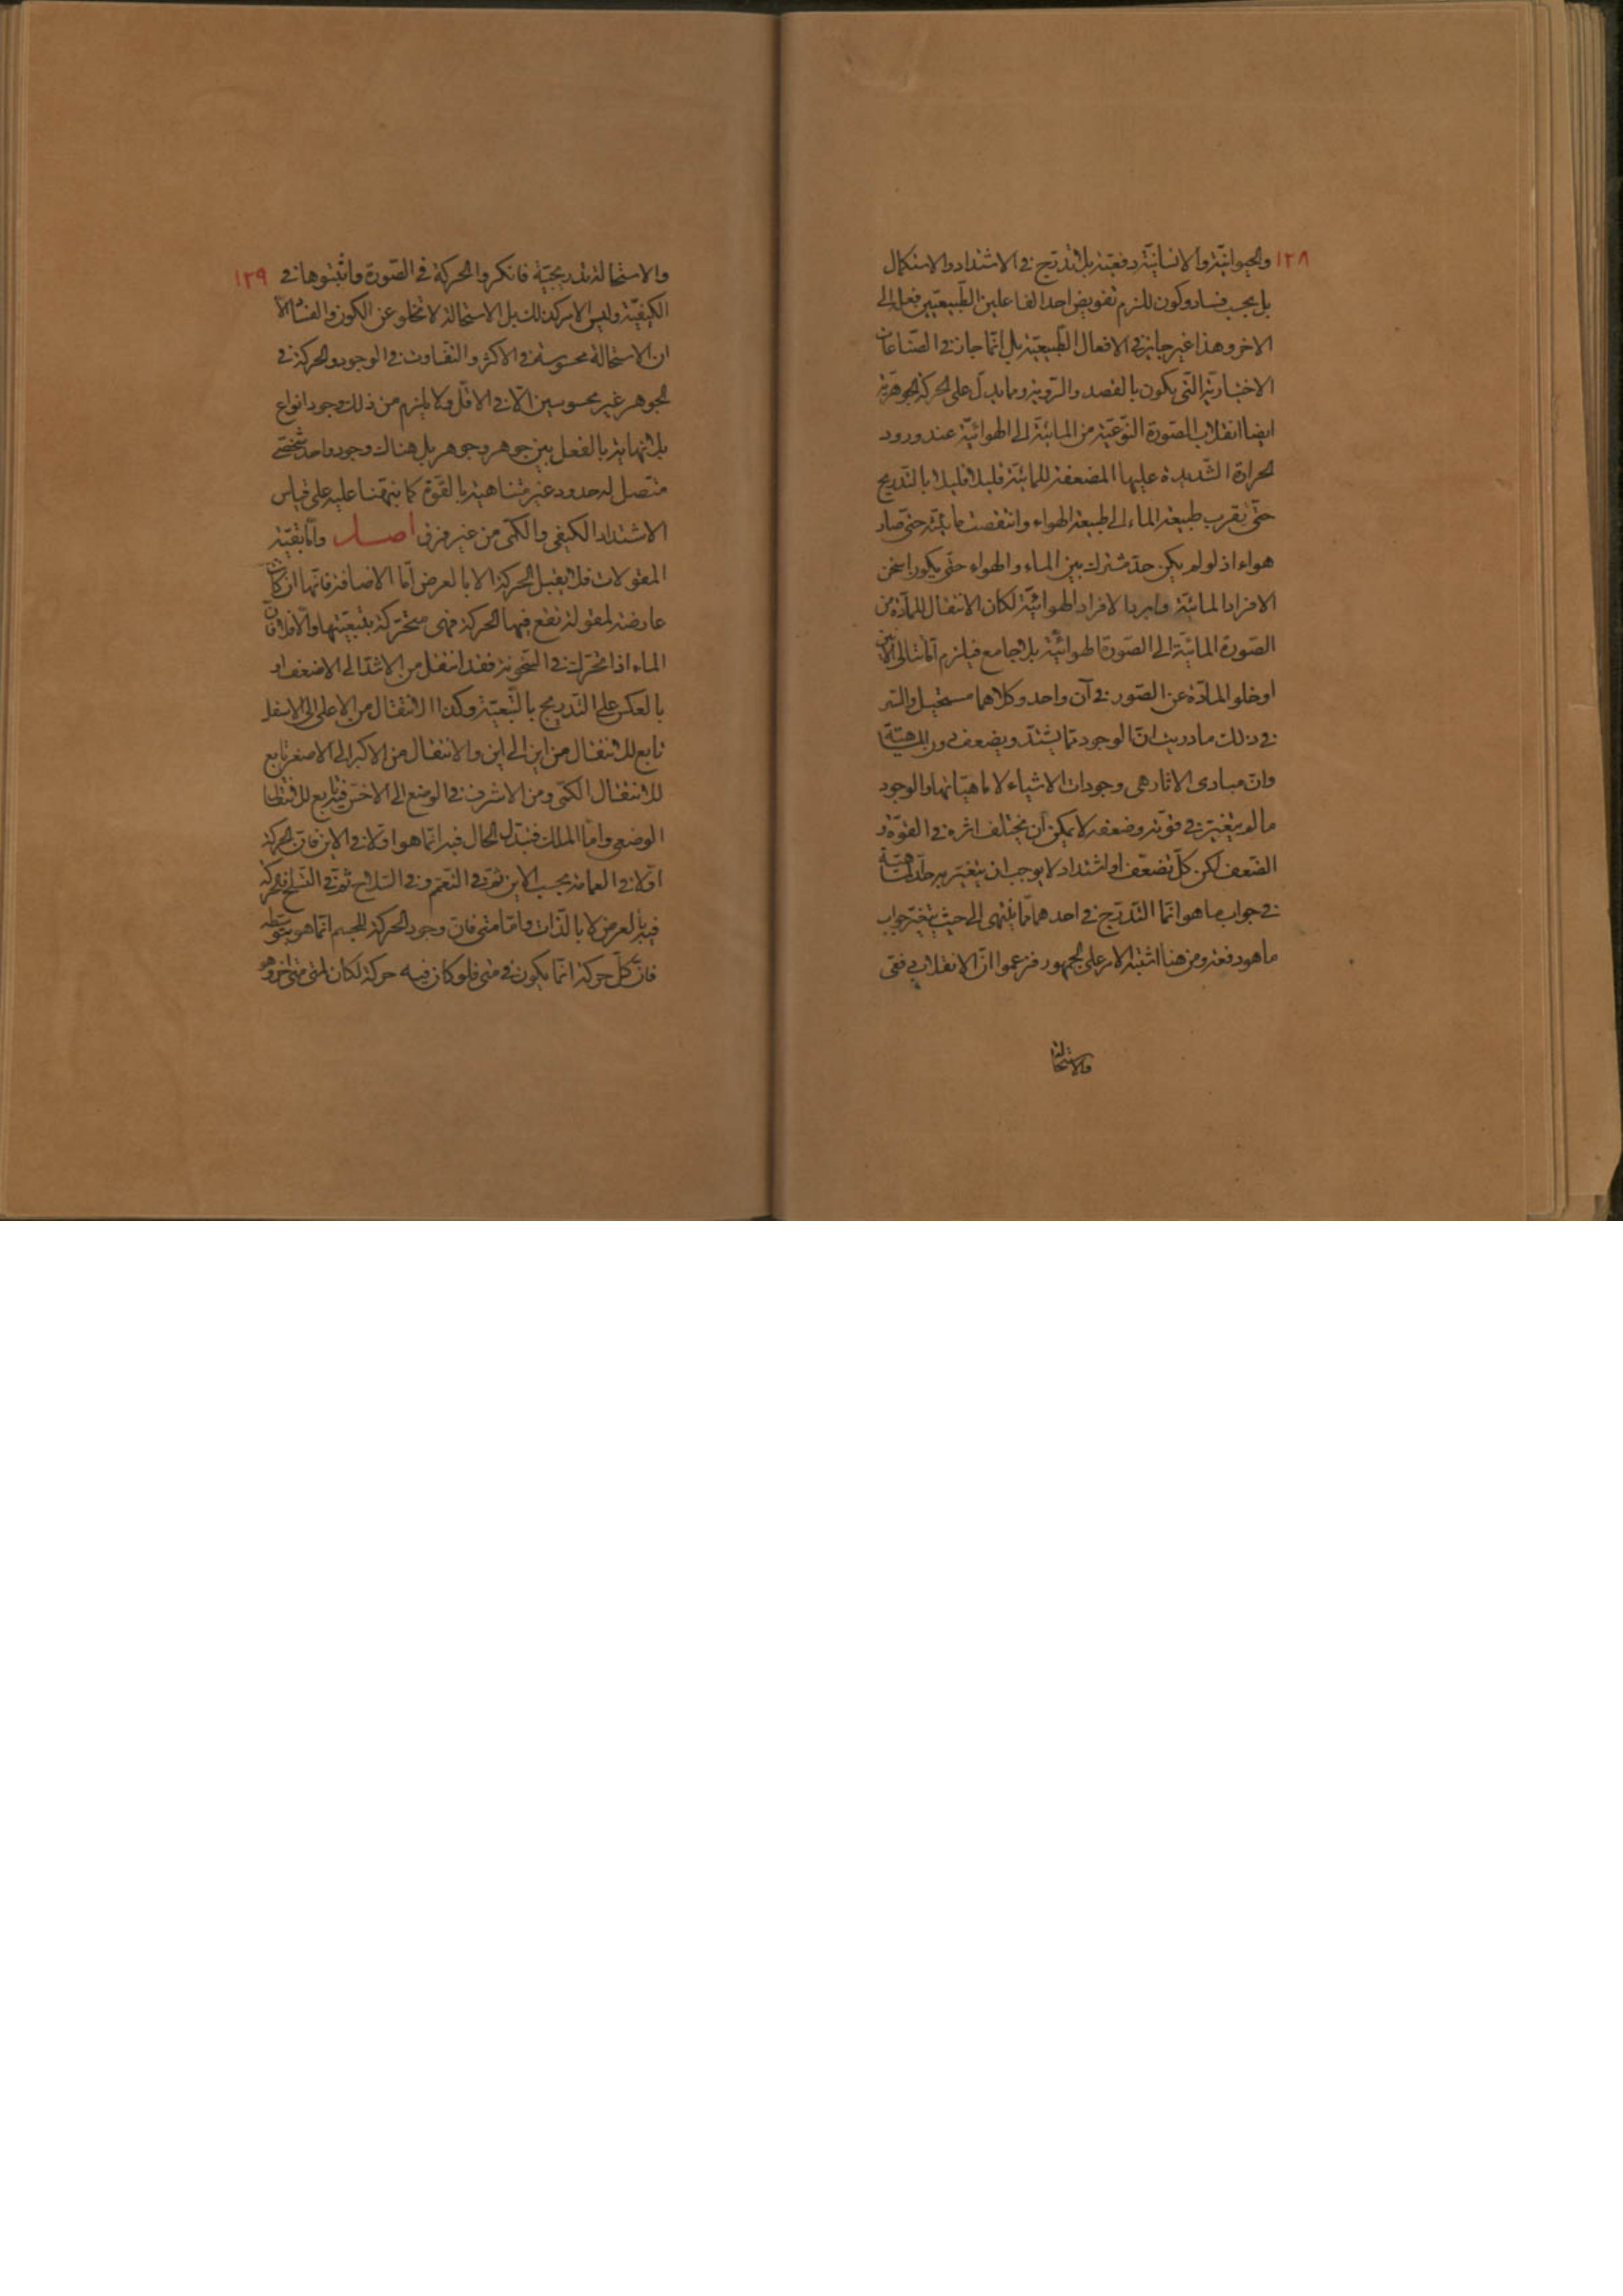 ١٢٨ والحيوانيّة والانسانيّة دفعيّة بلا تدرّج في الاشتداد والاستكمال
بل يجب فساد وكون للزم تفويض احد الفاعلين الطّبيعيّين فعله الى
الاخر وهذا غير جايز في الافعال الطّبيعيّة بل انّما جاز في الصّناعات
الاختياريّة الّتي يكون بالقصد والرّويّة وما يدلّ على الحركة الجوهريّة
ايضا انقلاب الصّورة النّوعيّة من المائيّة الى الهوائيّة عند ورود
الحرارة الشّديدة عليها المضعفة للمائيّة قليلا قليلا بالتّدريج
حتّى يقرب طبيعة الماء الى طبيعة الهواء وانتقصت مائيّته حتّى صار
هواء اذ لو لم يكن حدّ مشترك بين الماء والهواء حتّى يكون اسخن
الافراد المائيّة وابرد الافراد الهوائيّة لكان الانتقال للمادّة من
الصّورة المائيّة الى الصّورة الهوائيّة بلا جامع فيلزم امّا تتالى الآنين
او خلو المادّة عن الصّور في آن واحد وكلاهما مستحيل والسّر
في ذلك ما دريت انّ الوجود ممّا يشتدّ ويضعف دون المهيّة
وانّ مبادى الاثار هي وجودات الاشياء لا ماهيّاتها والوجود
ما لم يتغيّر في قوّته وضعفه لا يمكن ان يختلف اثره في القوّة و
الضّعف لكن كلّ تضعّف او اشتداد لا يوجب ان يتغيّر به حدّ الماهيّة
في جواب ما هو انّما التّدرّج في احدهما ممّا ينتهى الى حيث يتغيّر جواب
ما هو دفعة ومن هنا اشتبه الامر على الجمهور فزعموا انّ الانقلاب دفعى
والاستحالة
والاستحالة تدريجيّة فانكروا الحركة في الصّورة واثبتوها في ١٢٩
الكيفيّة وليس الامر كذلك بل الاستحالة لا تخلو عن الكون والفساد الّا
ان الاستحالة محسوسة في الاكثر والتّفاوت في الوجود والحركة في
الجوهر غير محسوسين الّا في الاقلّ ولا يلزم من ذلك وجود انواع
بلا نهاية بالفعل بين جوهر وجوهر بل هناك وجود واحد شخصّي
متّصل له حدود غير متناهية بالقوّة كما نبّهنا عليه على قياس
الاشتداد الكيفي والكمّي من غير فرق اصل وامّا بقيّة
المقولات فلا يقبل الحركة الا بالعرض امّا الاضافة فانّها ان كانت
عارضة لمقولة تقع فيها الحركة فهى متحرّكة بتبعيّتها والّا فلا فانّ
الماء اذا تحرّك في السّخونة فقد انتقل من الاشدّ الى الاضعف او
بالعكس على التّدريج بالتّبعيّة وكذا الانتقال من الاعلى الى الاسفل
تابع للانتقال من اين الى اين والانتقال من الاكبر الى الاصغر تابع
للانتقال الكمّي ومن الاشرف في الوضع الى الاخسّ فيتابع للانتقال
الوضعى وامّا الملك فتبدّل الحال فيه انّما هو اوّلا في الاين فانّ الحركة
اوّلا في العمامة بحسب الاين ثمّ في التّعمّم وفي السّلاح ثمّ في التّسلّح فالحركة
فيه بالعرض لا بالذّات وامّا متى فانّ وجود الحركة للجسم انّما هو بتوسّطه
فانّ كلّ حركة انّما يكون في متى فلو كان فيه حركة لكان لمتى متى اخر وهو